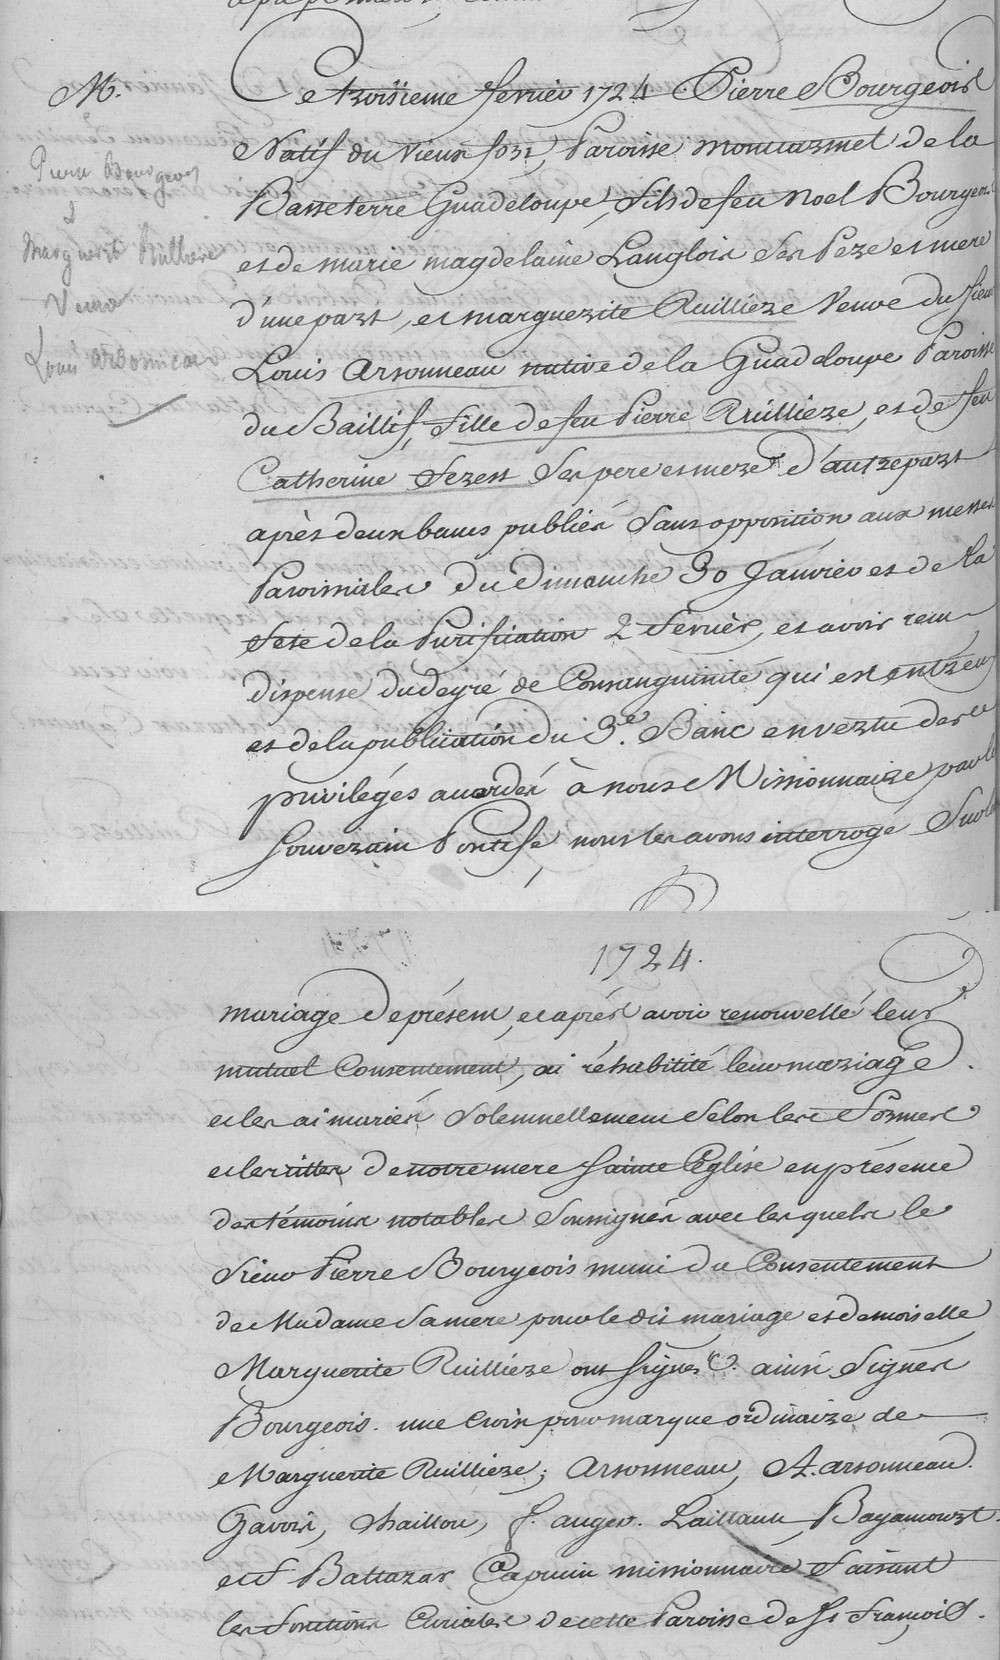 M.
Ce troisieme fevrier 1724 Pierre Bourgeois
Natif du vieux fort, Paroisse moncarmel de la
Basseterre Guadeloupe, fils de feu Noel Bourgeois
et de marie magdelaine Langlois ses Pere et mere
d'une part, et marguerite Ruilliere Veuve du sieur
Louis Arsonneau native de la Guadeloupe Paroisse
du Baillif, fille de feu Pierre Ruilliere, et de feu
Catherine ses pere et mere d'autre part
après deux bancs publiés sans opposition aux messes
Paroissiales du dimanche 30 Janvier et de la
feste de la Purification 2 fevrier, et avoir
dispense du degré de Consanguinité qui est entr'eux
et de la publication du 3.e Banc en vertu des
privilégés accordés à nous Missionnaire par le
souverain Pontife, nous les avons interrogé sur le
Pierre Bourgeois
&
Marguerit Rulliere
Veuve
Louis arsonneau
1724.
mariage de présent, et après avoir renouvellé leur
mutuel Consentement, ai réhabilité leur mariage
et les ai mariés solemnellement selon les formes
et les rittes de notre mere sainte Eglise en présence
des témoins notables soussignés avec lesquels le
sieur Pierre Bourgeois muni du Consentement
de Madame sa mere pour le dit mariage et demoiselle
Marguerite Ruilliere ont signés. ainsi signés
Bourgeois. une Croix pour marque ordinaire de
Marguerite Ruilliere; Arsonneau, A. arsonneau.
Gavois, Chaillou, f. auger. Bagamourt.
et f Baltazar Capucin missionnaire faisant
les fonctions Curiales de cette Paroisse de St François.